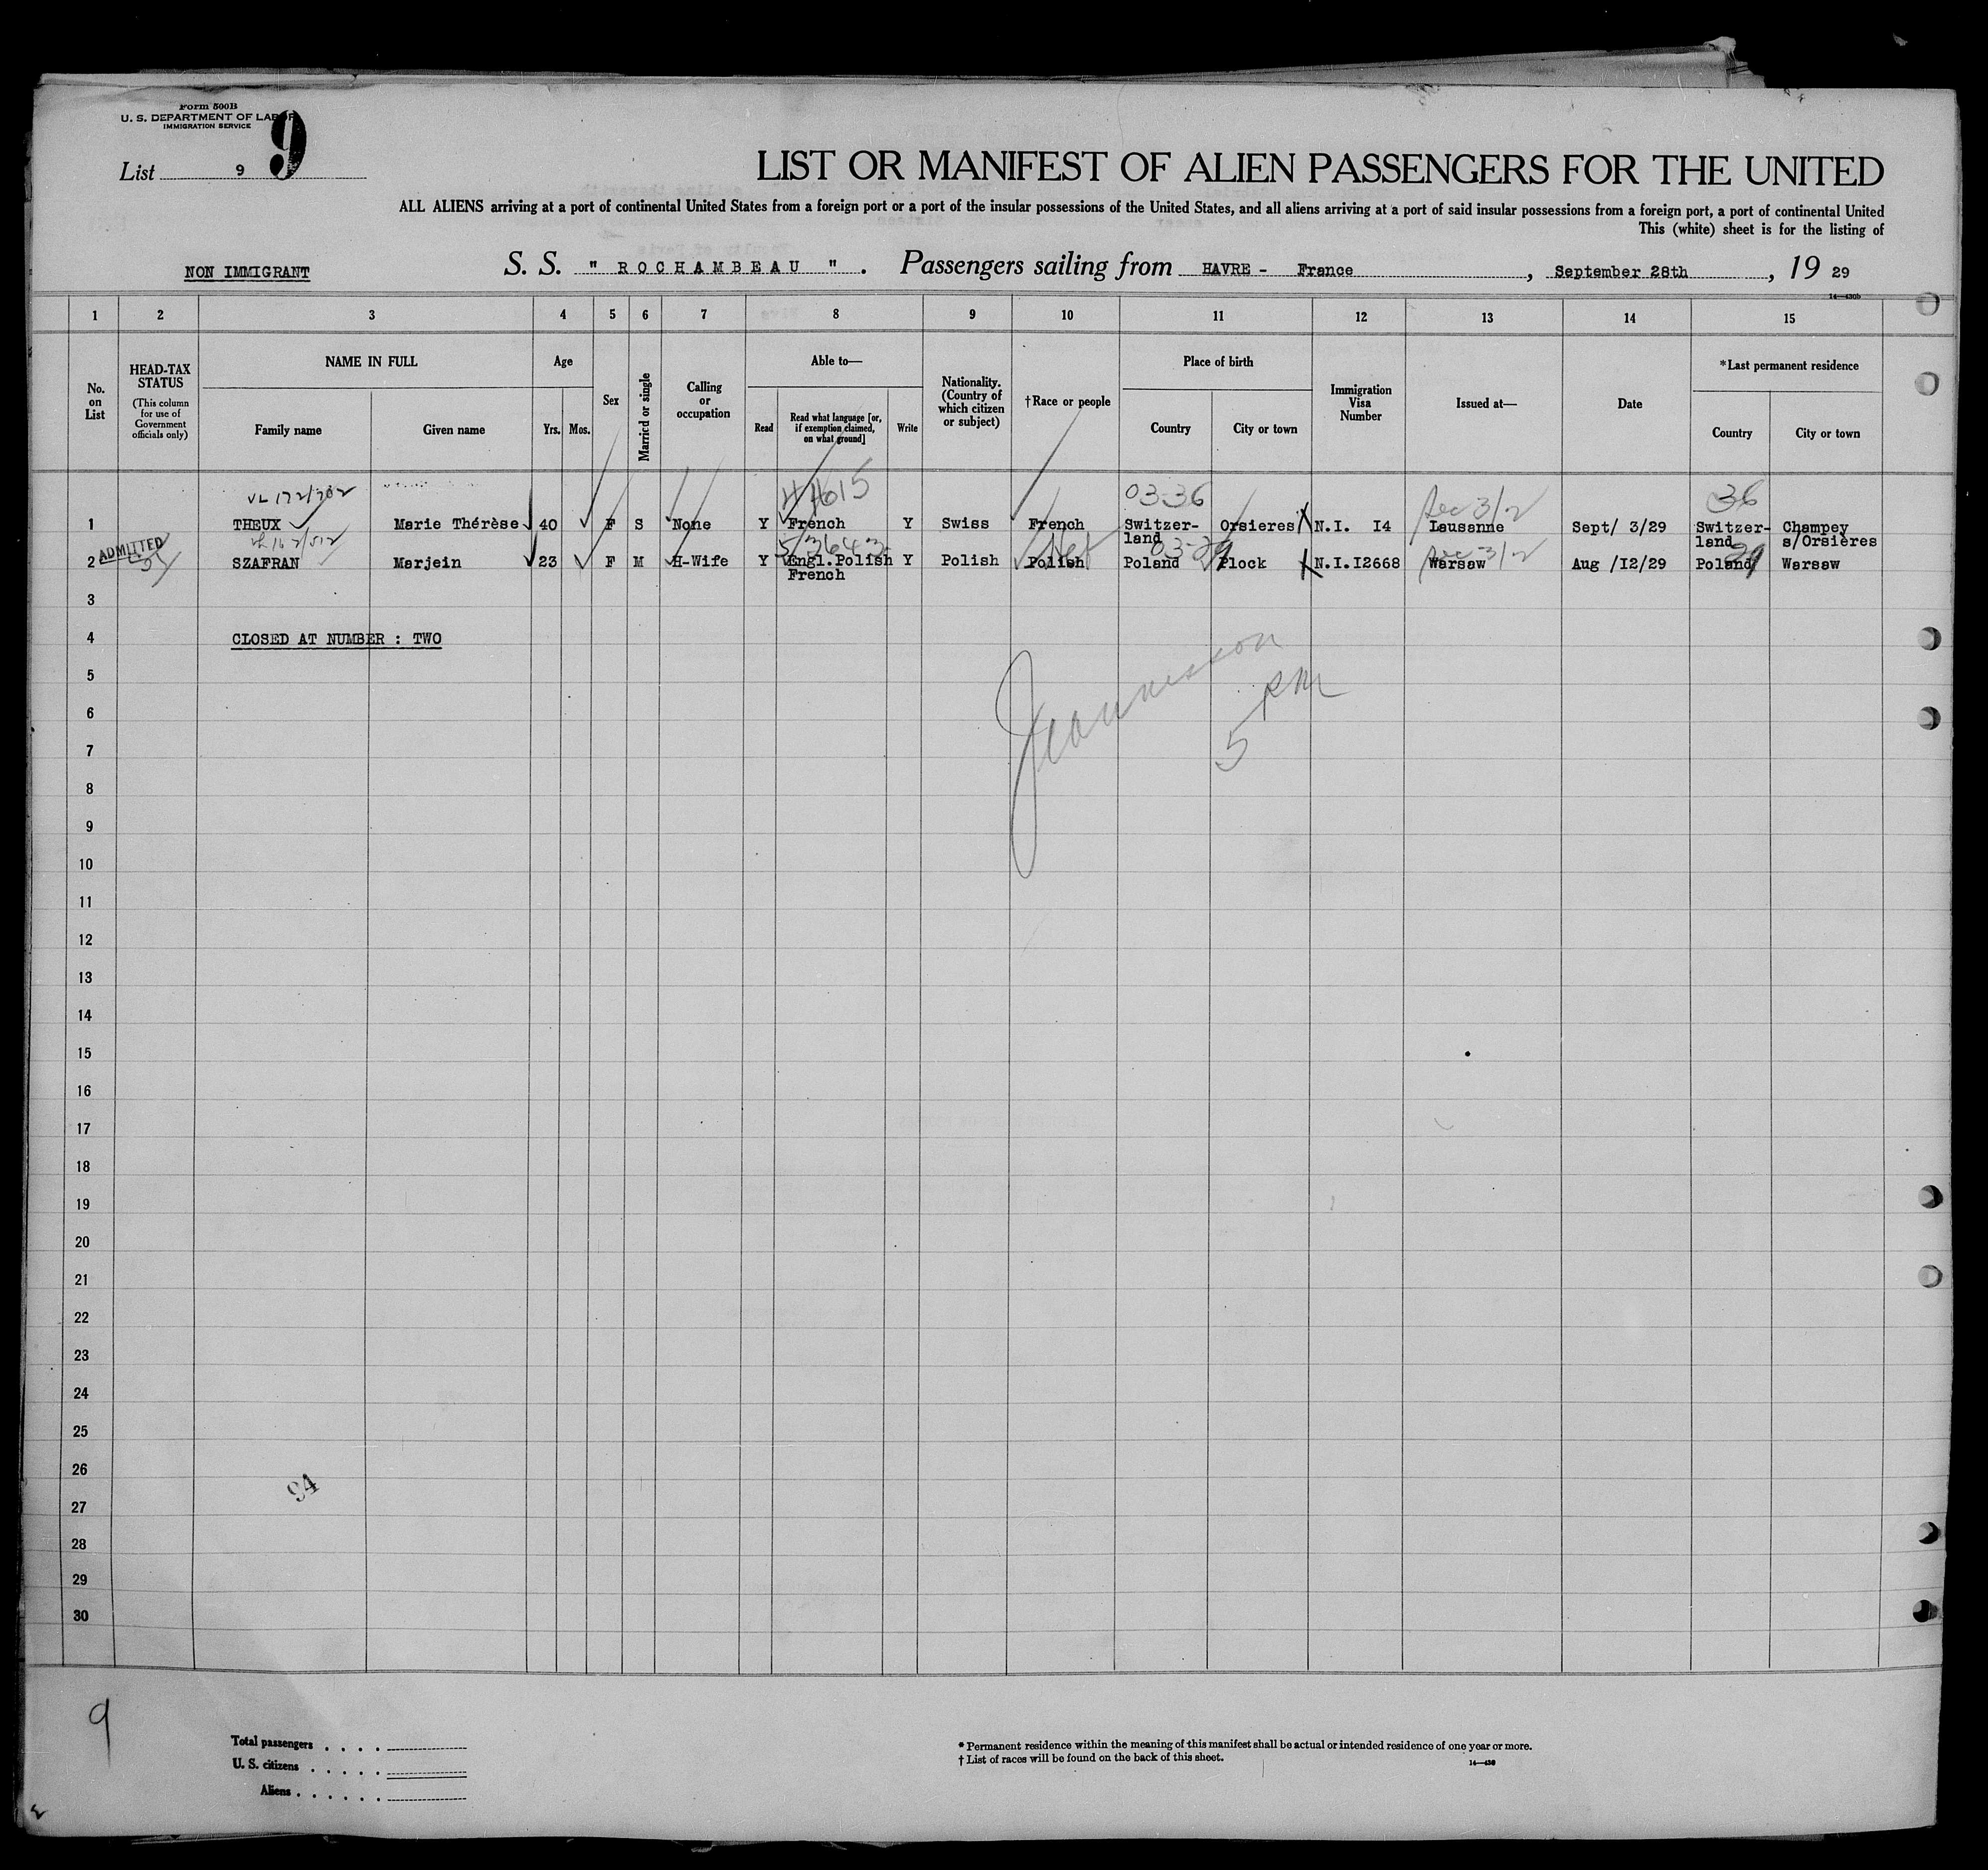 Form 500B
U. S. DEPARTMENT OF LABOR
IMMIGRATION SERVICE
9
List 9
LIST OR MANIFEST OF ALIEN PASSENGERS FOR THE UNITED
ALL ALIENS arriving at a port of continental United States from a foreign port or a port of the insular possessions of the United States, and all aliens arriving at a port of said insular possessions from a foreign port, a port of continental United
This (white) sheet is for the listing of
NON IMMIGRANT S. S. " ROCHAMBEAU " . Passengers sailing from HAVRE - France , September 28th , 19 29
14—430b
1 2 3 4 5 6 7 8 9 10 11 12 13 14 15
No. on List
HEAD-TAX STATUS
(This column for use of Government officials only)
NAME IN FULL
Family name Given name
Age
Yrs. Mos.
Sex
Married or single
Calling or occupation
Able to—
Read
Read what language [or, if exemption claimed, on what ground]
Write
Nationality. (Country of which citizen or subject)
†Race or people
Place of birth
Country City or town
Immigration Visa Number
Issued at—
Date
*Last permanent residence
Country City or town
44615 03-36 36
1 THEUX Marie Thérèse 40 F S None Y French Y Swiss French Switzer- Orsieres N.I. I4 Lausanne Sept/ 3/29 Switzer- Champey
land land s/Orsières
ADMITTED
2 SZAFRAN Marjein 23 F M H-Wife Y Engl.Polish Y Polish Polish Poland Plock N.I.I2668 Warsaw Aug /12/29 Poland Warsaw
French
3
4 CLOSED AT NUMBER : TWO
5
6
7
8
9
10
11
12
13
14
15
16
17
18
19
20
21
22
23
24
25
26
27
28
29
30
5
94
9
Total passengers . . . .
U. S. citizens . . . . .
Aliens . . . . . .
* Permanent residence within the meaning of this manifest shall be actual or intended residence of one year or more.
† List of races will be found on the back of this sheet.
14—430